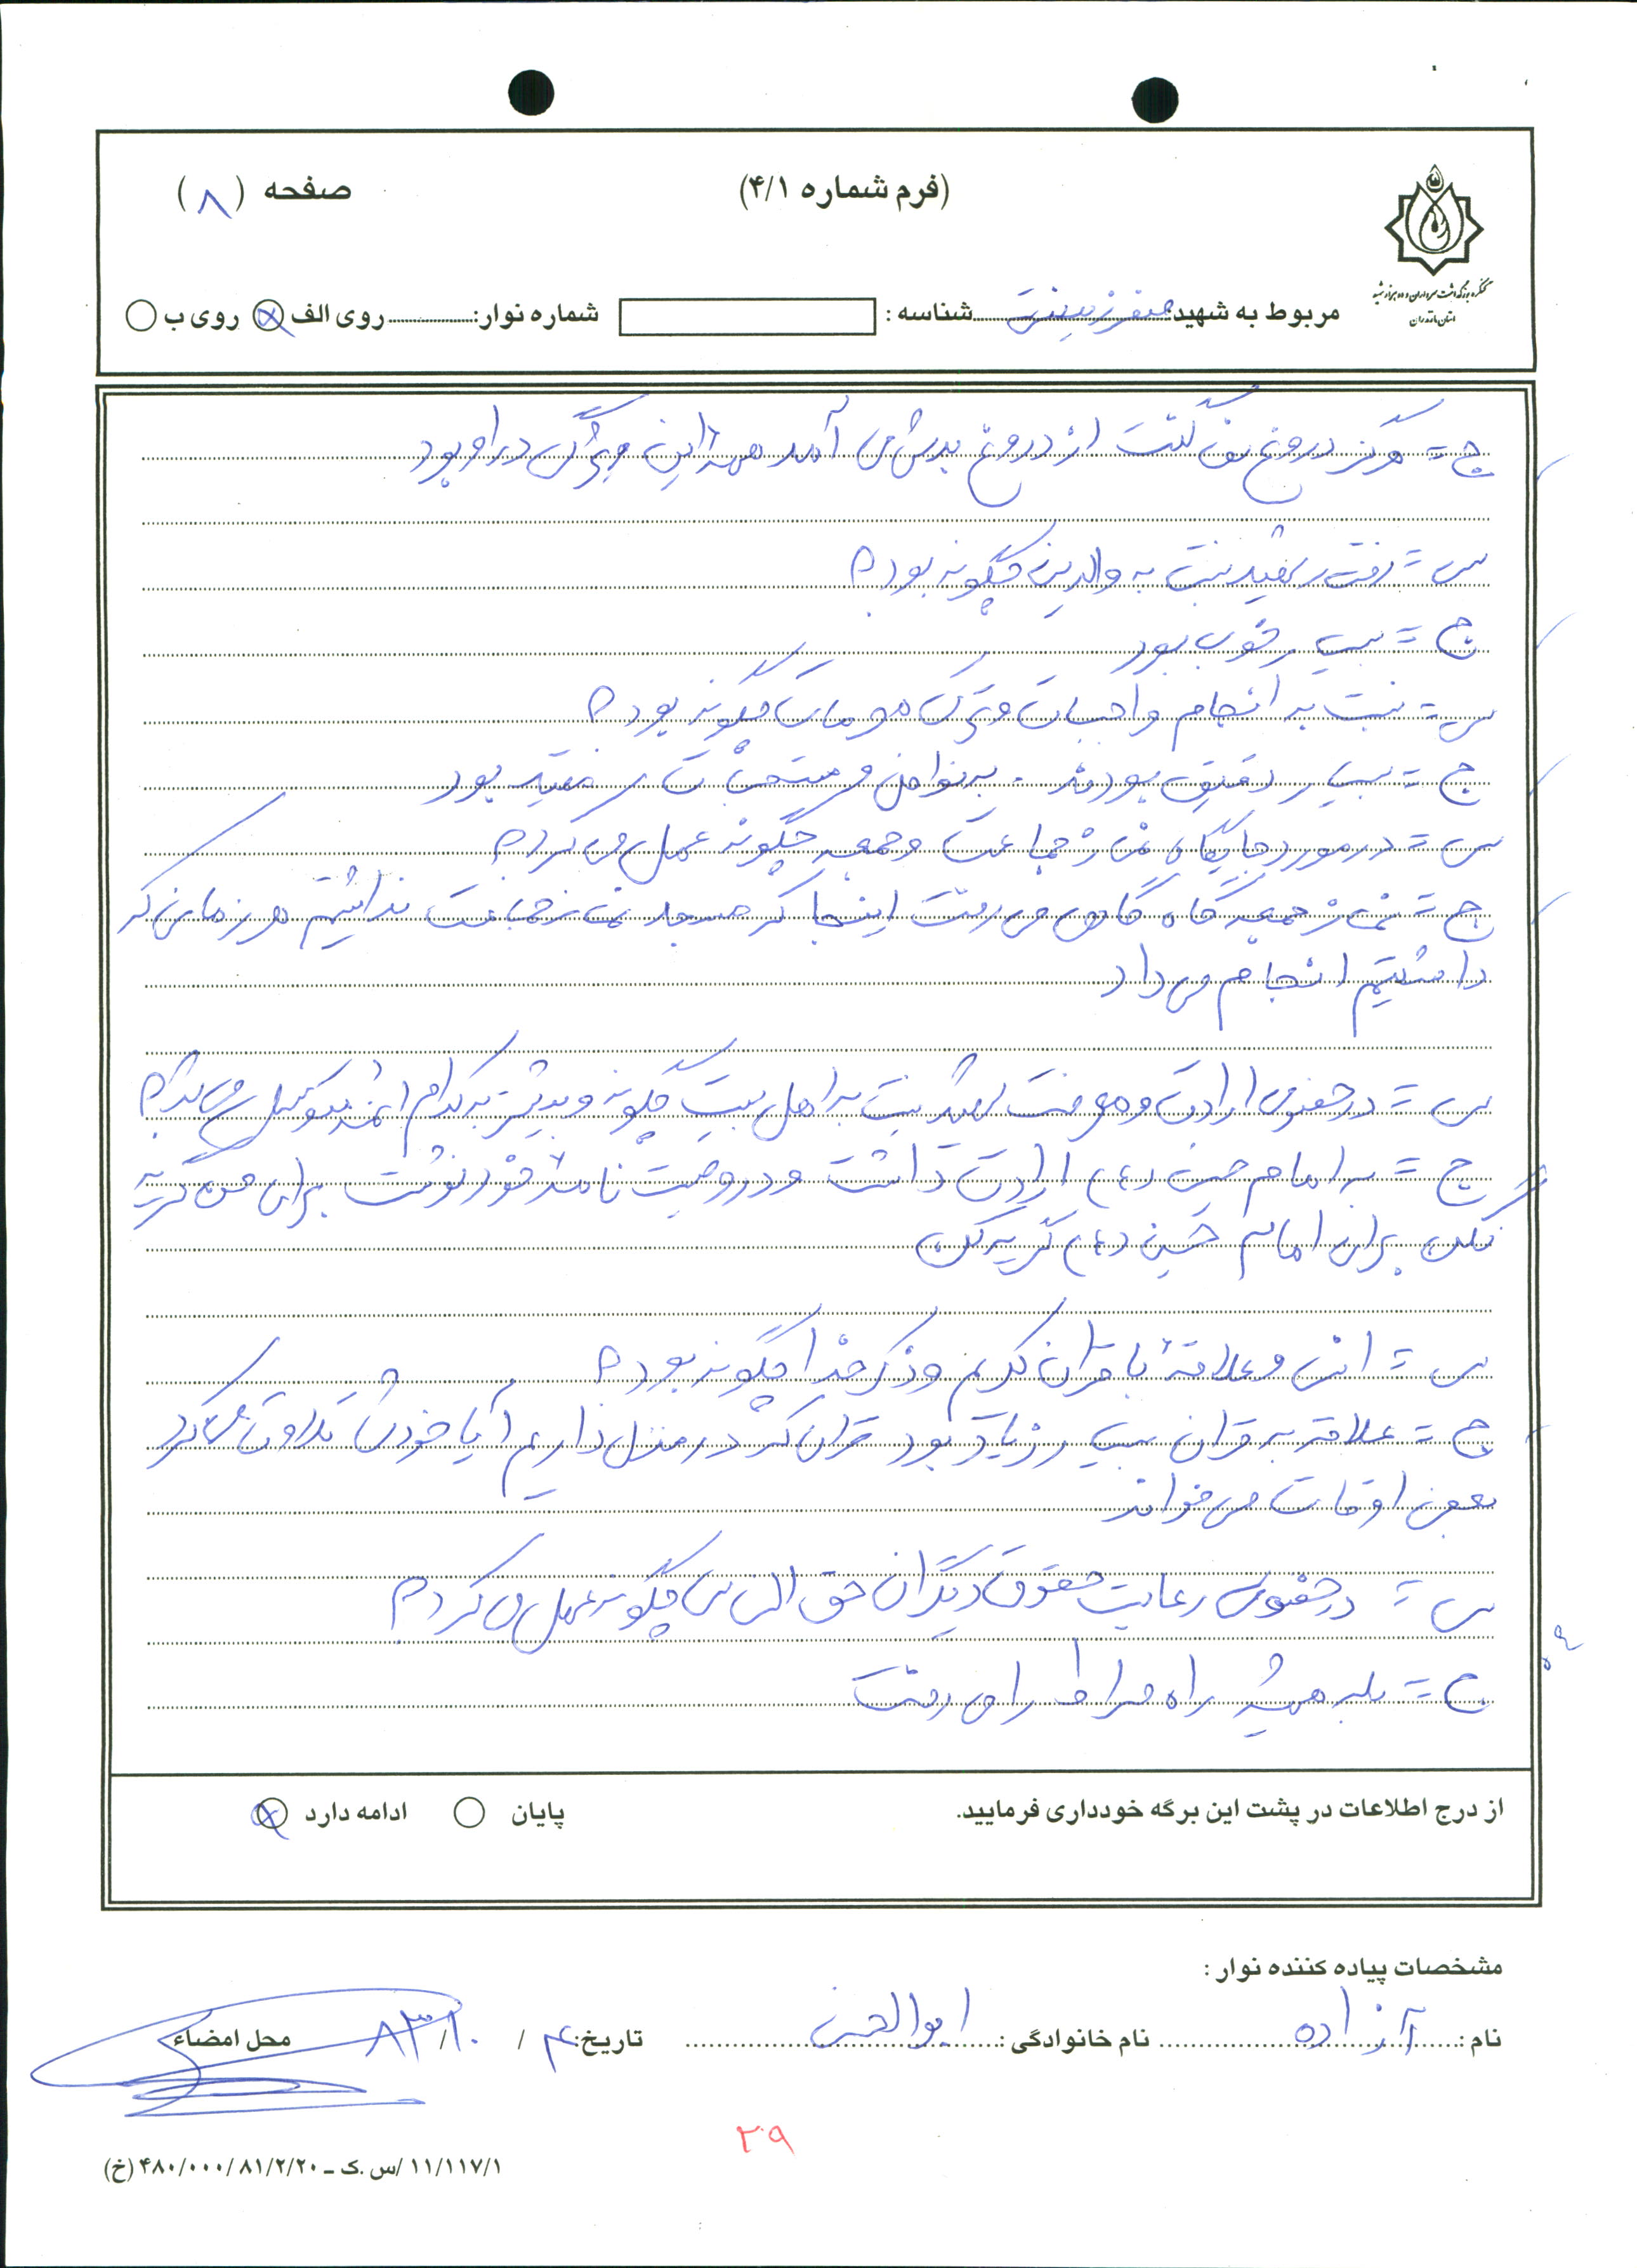 (فرم شماره ۴/۱)
صفحه (۸)
کنگره بزرگداشت سرداران و ده هزار شهید
استان مازندران
مربوط به شهید: شناسه: شماره نوار: روی الف روی ب
ج = هرگز دروغ نمی گفت از دروغ بدش می آمد همه این ویژگی در او بود
س = رفتار شهید نسبت به والدین چگونه بود؟
ج = بسیار خوب بود
س = نسبت به انجام واجبات و ترک محرمات چگونه بود؟
ج = بسیار دقیق بودند . به نوافل و مستحبات بود
س = در مورد جایگاه نماز جماعت و جمعه چگونه عمل می کرد؟
ج = نماز جمعه گاه گاهی می رفت اینجا که مسجد نماز جماعت نداشتیم هر زمانی که
داشتیم انجام می داد
س = در خصوص ارادت و معرفت شهید نسبت به اهل بیت چگونه و بیشتر به کدام ائمه توسل می شد؟
ج = به امام حسین (ع) ارادت داشت و در وصیت نامه خود نوشت برای من گریه
نکن برای امام حسین (ع) گریه کن
س = انس و علاقه با قرآن کریم و ذکر خدا چگونه بود؟
ج = علاقه به قرآن بسیار زیاد بود قرآن که در منزل داریم آیا خودش تلاوت می کرد
بعضی اوقات می خواند
س = در خصوص رعایت حقوق دیگران حق الناس چگونه عمل می کرد؟
ج = بله همیشه راه صراط را می رفت
از درج اطلاعات در پشت این برگه خودداری فرمایید.
پایان ادامه دارد
مشخصات پیاده کننده نوار :
نام : آزاده نام خانوادگی : ابوالحسنی تاریخ: ۴ / ۱۰ / ۸۳ محل امضاء
۲۹
۱۱/۱۱۷/۱ /س.ک ـ ۸۱/۲/۲۰ /۴۸۰/۰۰۰ (خ)